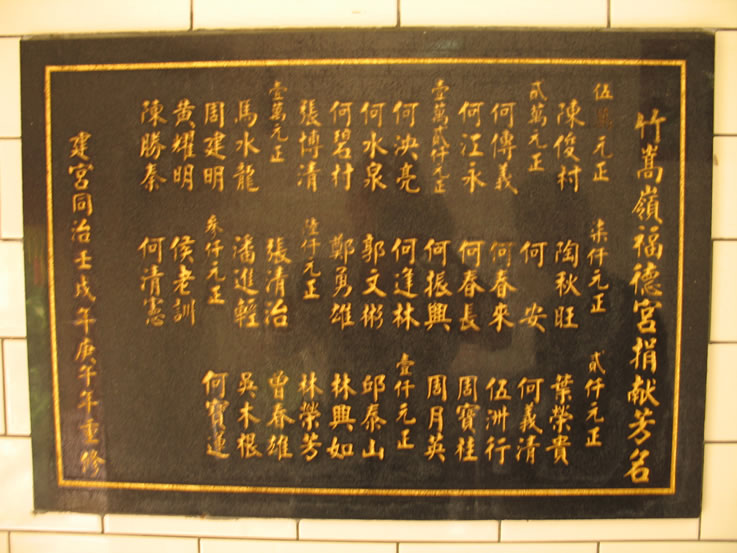 竹嵩嶺福德宮捐献芳名
伍萬元正
陳俊村
貳萬元正
何傳義
何江永
壹萬貳仟元正
何泱亮
何水泉
何碧村
張博清
壹萬元正
馬水龍
周建明
黃耀明
陳勝泰
柒仟元正
陶秋旺
何安
何春來
何春長
何振興
何逢林
郭文彬
鄭勇雄
陸仟元正
張清治
潘進輕
參仟元正
侯老訓
何清憲
貳仟元正
葉榮貴
何義清
伍洲行
周寶桂
周月英
壹仟元正
邱泰山
林興如
林榮芳
曾春雄
吳木根
何寶蓮
建宮同治壬戌年庚午年重修